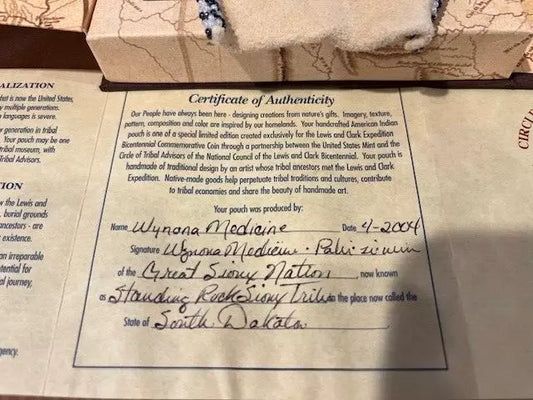 ALIZATION
that is now the United States,
by multiple generations.
e languages is severe.
r generation in tribal
Your pouch may be one
tribal museum, with
Tribal Advisors.
TION
w the Lewis and
burial grounds
ancestors - are
existence.
an irreparable
otential for
al journey,
gency.
Certificate of Authenticity
Our People have always been here - designing creations from nature's gifts. Imagery, texture,
pattern, composition and color are inspired by our homelands. Your handcrafted American Indian
pouch is one of a special limited edition created exclusively for the Lewis and Clark Expedition
Bicentennial Commemorative Coin through a partnership between the United States Mint and the
Circle of Tribal Advisors of the National Council of the Lewis and Clark Bicentennial. Your pouch is
handmade of traditional design by an artist whose tribal ancestors met the Lewis and Clark
Expedition. Native-made goods help perpetuate tribal traditions and cultures, contribute
to tribal economies and share the beauty of handmade art.
Your pouch was produced by:
Name Wynona Medicine Date 4-2004
Signature Wynona Medicine
of the Great Sioux Nation, now known
as Standing Rock Sioux Tribe in the place now called the
State of South Dakota
CIRCLE